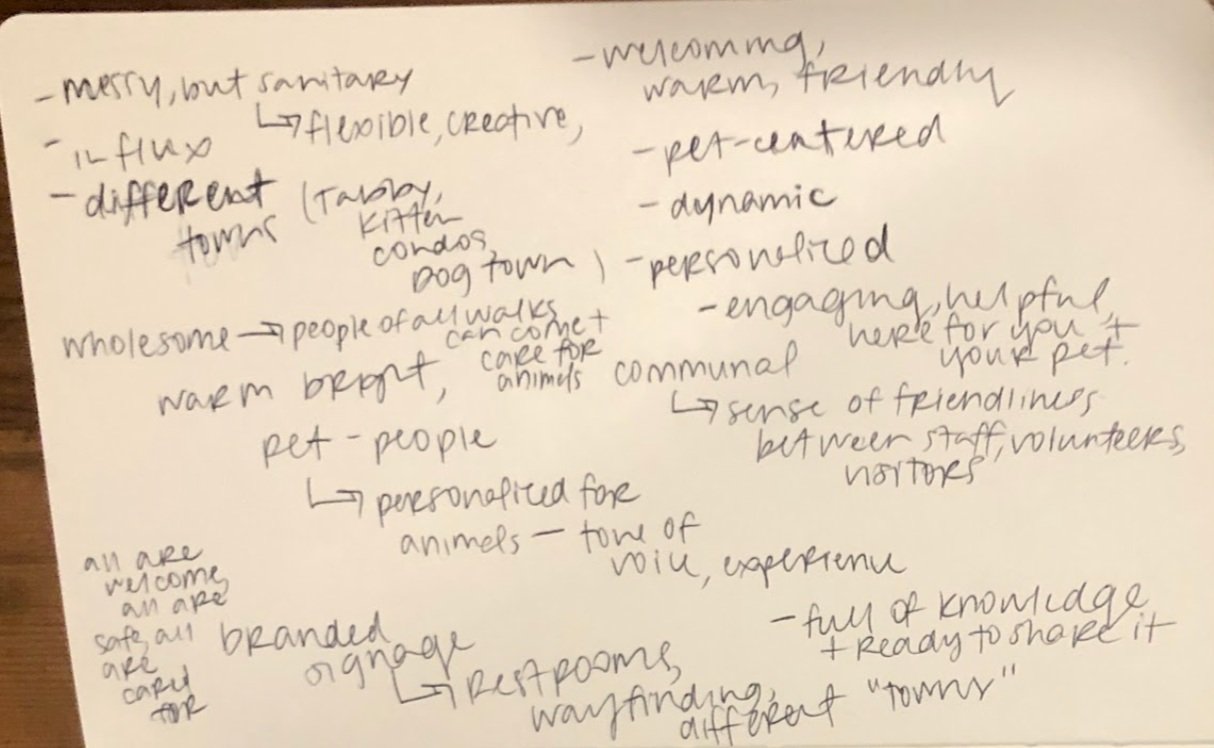 - messy, but sanitary
↳ flexible, creative,
- in flux
- different towns (Tabby,
Kitten
condos,
Dog town)
wholesome → people of all walks
can come +
care for
animals
warm bright,
pet-people
↳ personalized for
animals - tone of
voice, experience
all are
welcome,
all are
safe, all
are
cared
for
branded
signage
↳ Restrooms,
wayfinding,
different "towns"
- welcoming,
warm, friendly
- pet-centered
- dynamic
- personalized
- engaging, helpful,
here for you +
your pet.
communal
↳ sense of friendliness
between staff, volunteers,
visitors
- full of knowledge
+ ready to share it